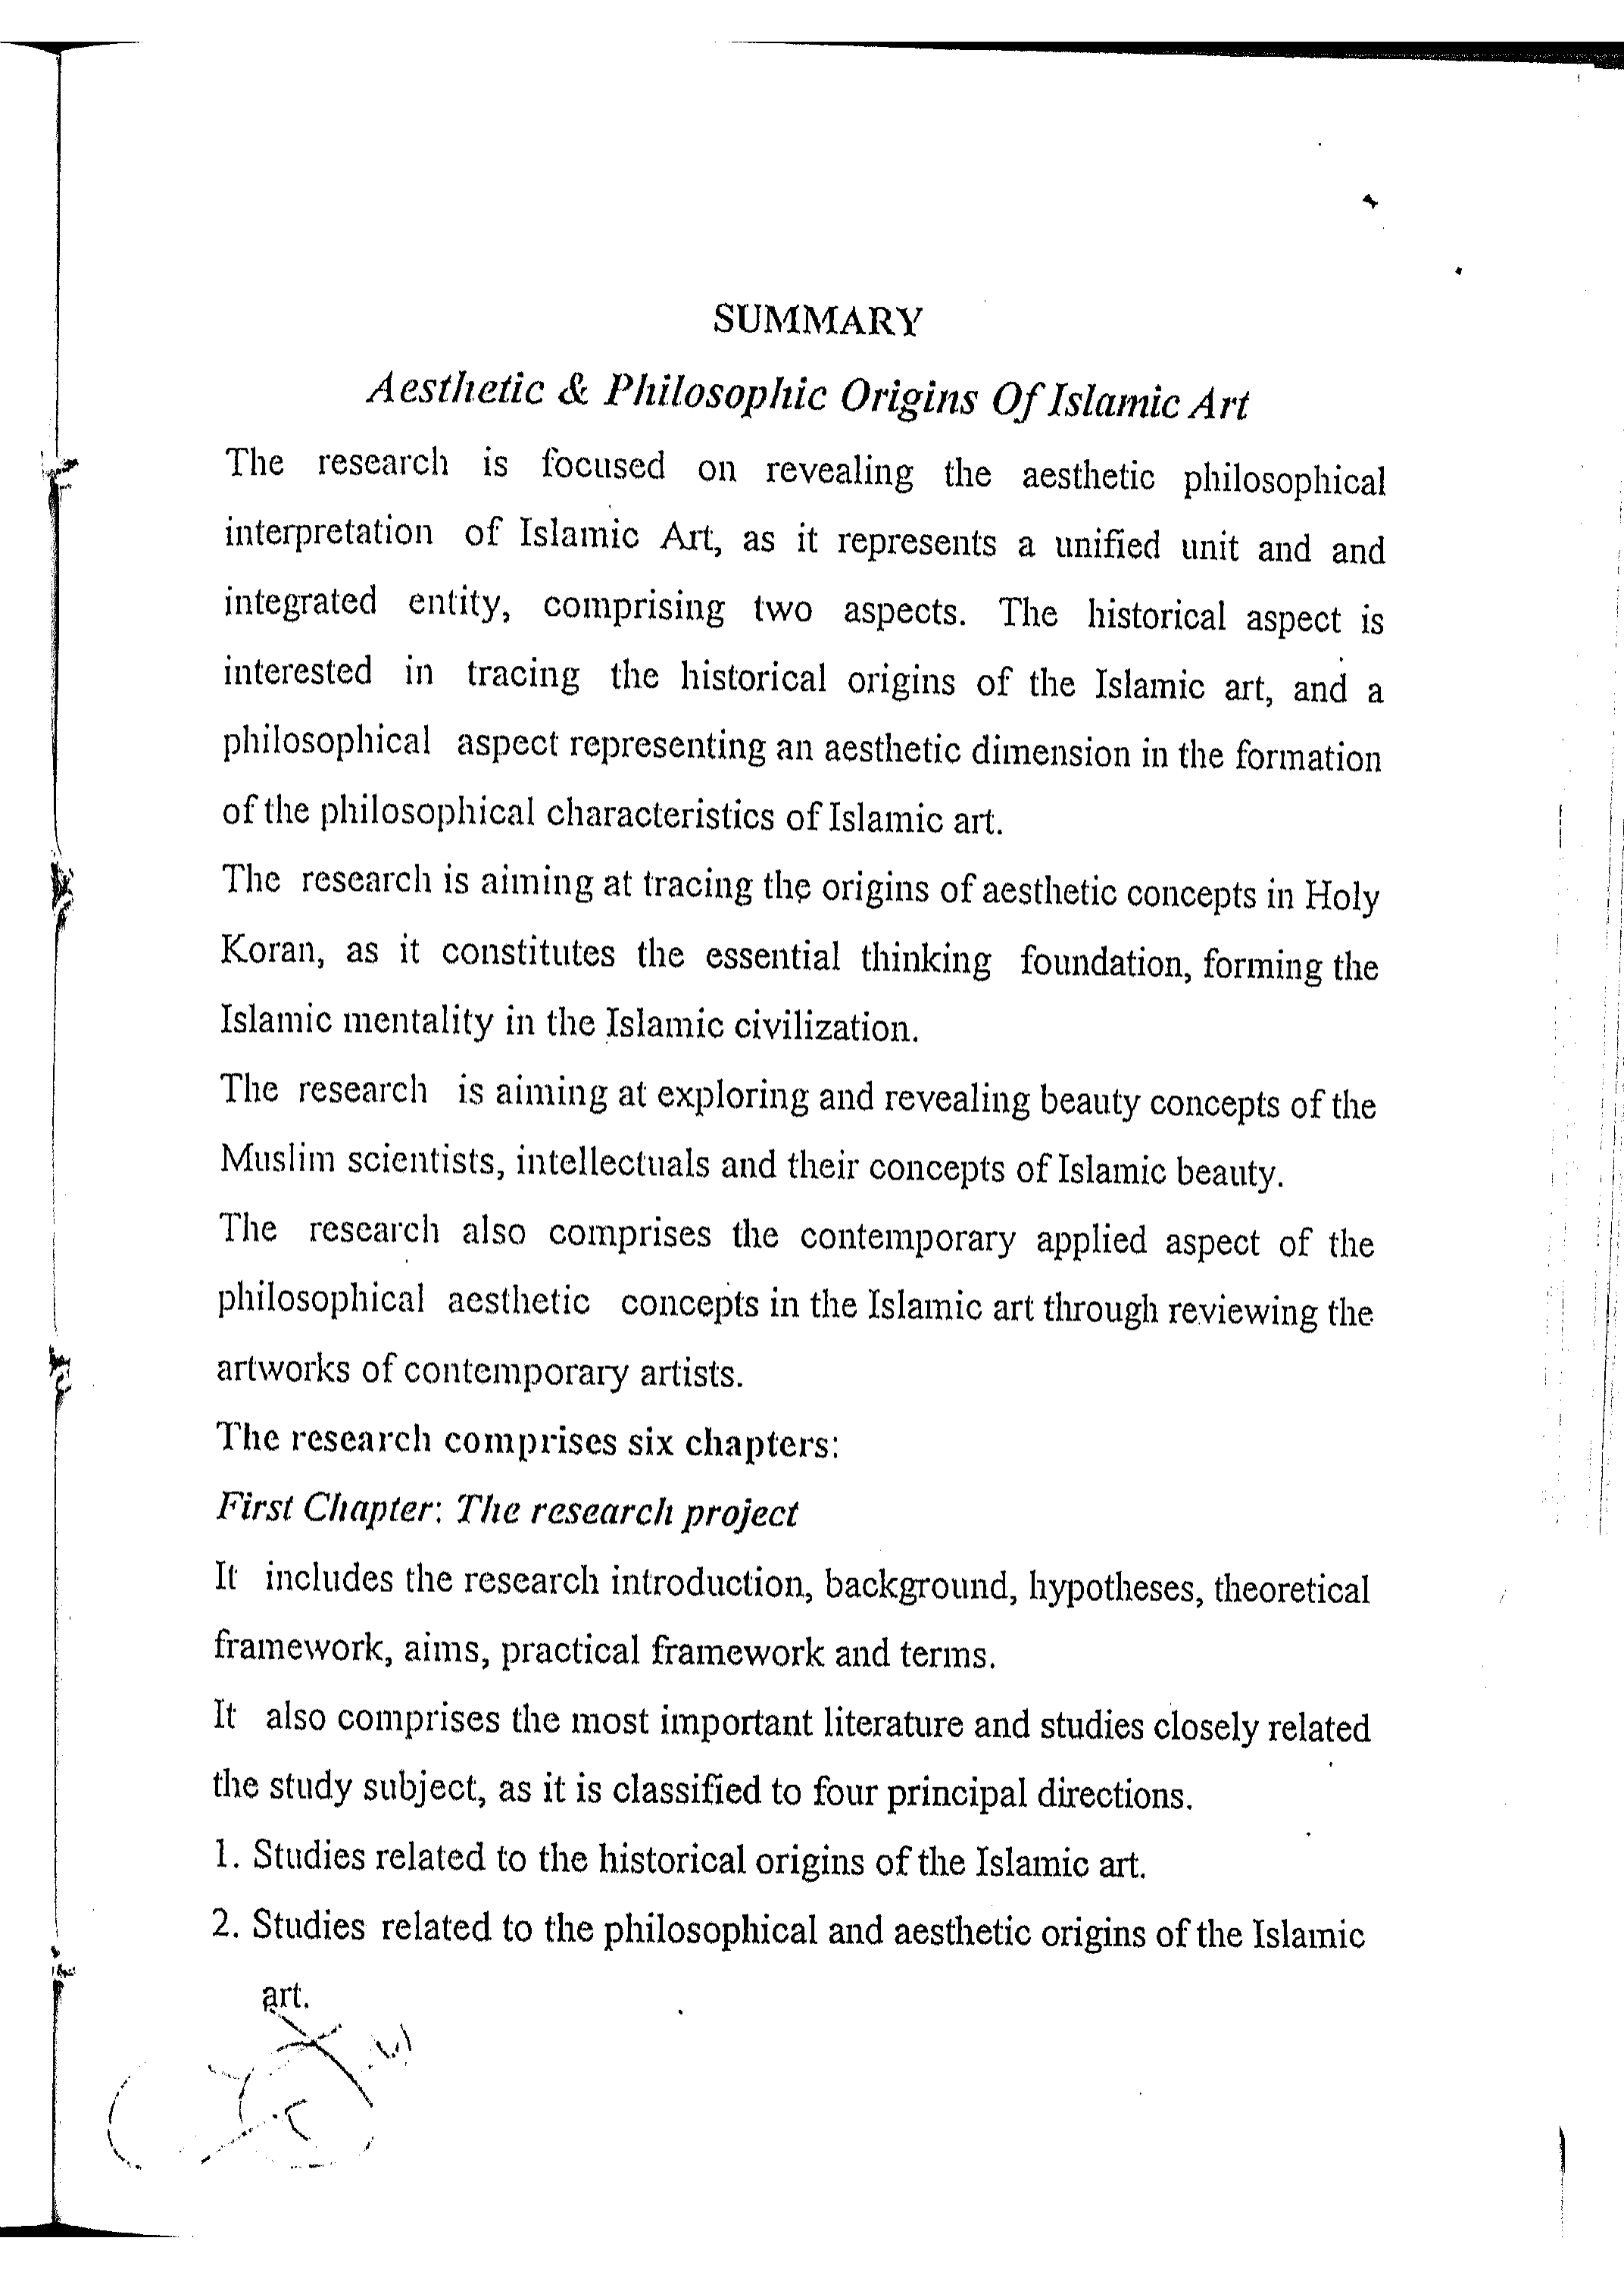 SUMMARY
Aesthetic & Philosophic Origins Of Islamic Art
The research is focused on revealing the aesthetic philosophical
interpretation of Islamic Art, as it represents a unified unit and and
integrated entity, comprising two aspects. The historical aspect is
interested in tracing the historical origins of the Islamic art, and a
philosophical aspect representing an aesthetic dimension in the formation
of the philosophical characteristics of Islamic art.
The research is aiming at tracing the origins of aesthetic concepts in Holy
Koran, as it constitutes the essential thinking foundation, forming the
Islamic mentality in the Islamic civilization.
The research is aiming at exploring and revealing beauty concepts of the
Muslim scientists, intellectuals and their concepts of Islamic beauty.
The research also comprises the contemporary applied aspect of the
philosophical aesthetic concepts in the Islamic art through reviewing the
artworks of contemporary artists.
The research comprises six chapters:
First Chapter: The research project
It includes the research introduction, background, hypotheses, theoretical
framework, aims, practical framework and terms.
It also comprises the most important literature and studies closely related
the study subject, as it is classified to four principal directions.
1. Studies related to the historical origins of the Islamic art.
2. Studies related to the philosophical and aesthetic origins of the Islamic
art.